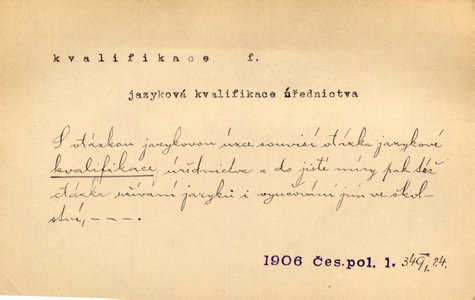 kvalifikace f.
jazyková kvalifikace úřednictva
S otázkou jazykovou úzce souvisí otázka jazykové
kvalifikace úřednictva a do jisté míry pak též
otázka užívání jazyků i vyučování jim ve škol-
ství, – – – .
1906 čes.pol. 1. 24.